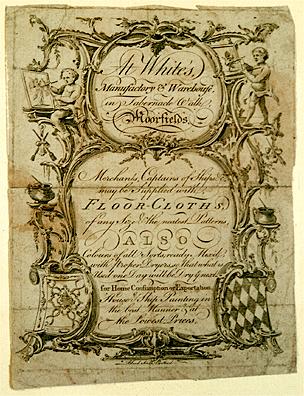 At White's,
Manufactory & Warehouse,
in Tabernacle Walk
Moorfields,
Merchants, Captains of Ships &c.
may be Supplied with
FLOOR-CLOTHS,
of any Size & the neatest Patterns,
ALSO
Colours of all Sorts, ready Mix'd
with Proper Dryers, so that what is
Used one Day will be Dry y. next.
for Home Consumption or Exportation
House & Ship Painting in
the best Manner & at
the Lowest Prices.